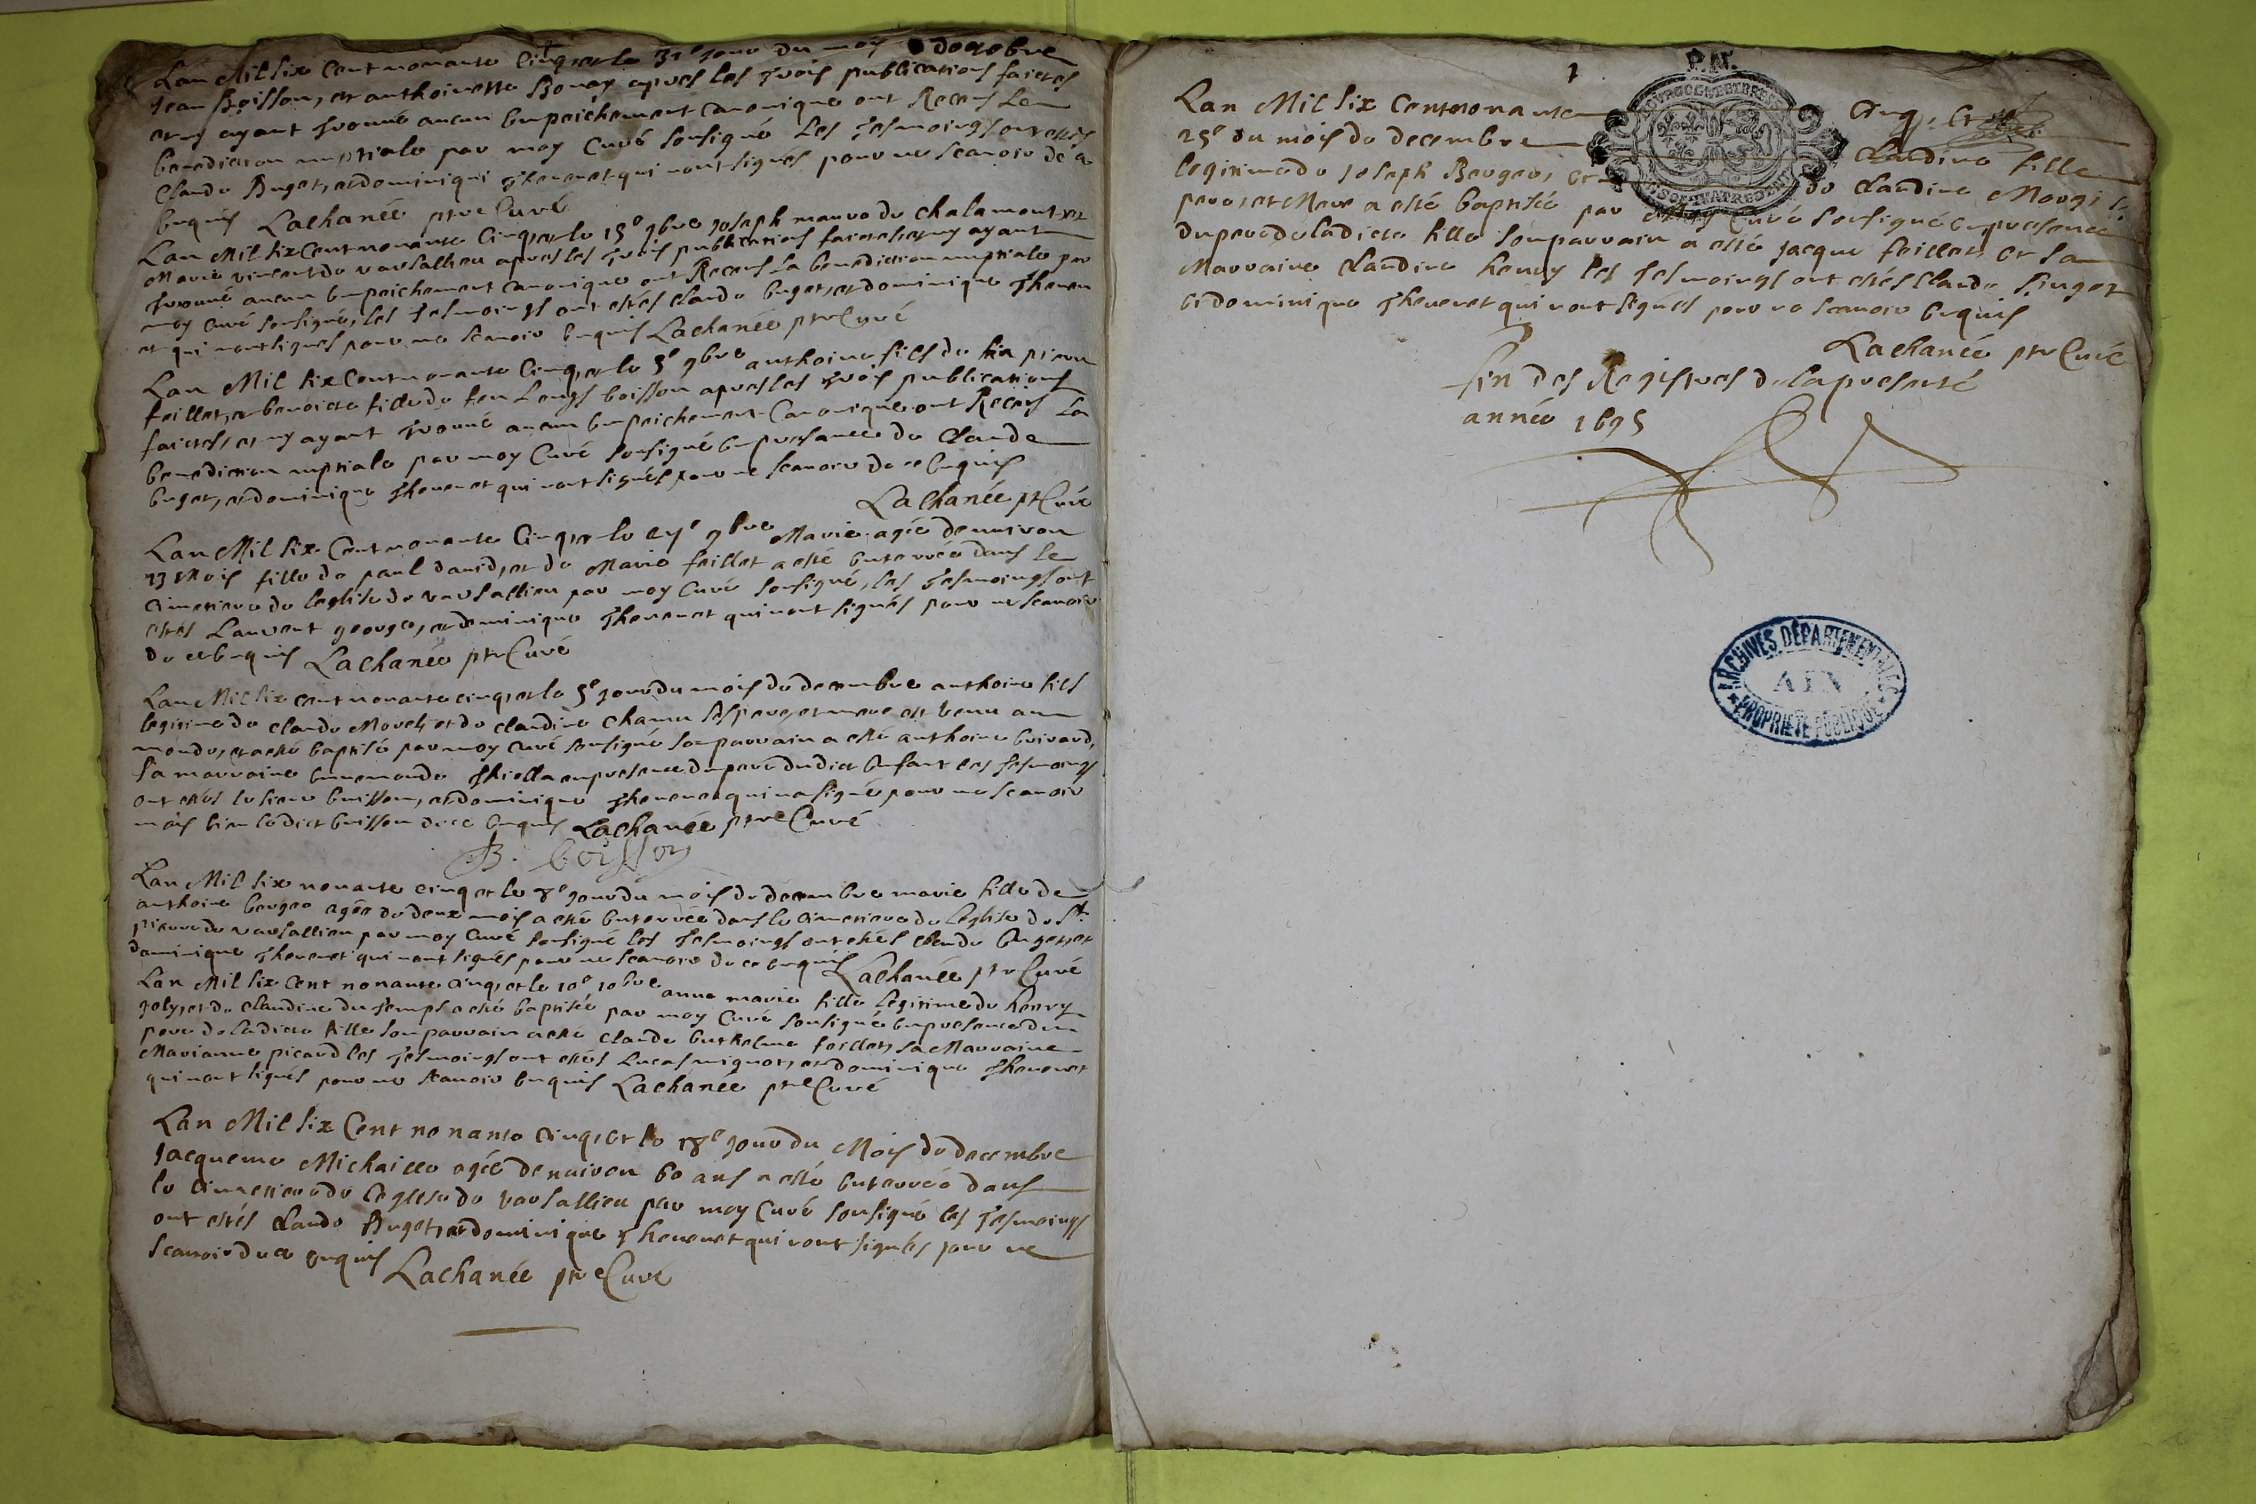 Lan Mil six Cent nonante Cinq, et le 31e jour du moy doctobre
Jean Boisson, et anthoinette Bonay apres les trois publications faictes
et ny ayant trouvé aucun Empeichement Canonique ont Receus Len
benediction nuptiale par moy Curé sousigné Les tesmoings ont estés
Claude Buget, et dominique thevenet qui nont signés pour ne scavoir de ce
Enquis Lachanée ptre Curé
Lan Mil six Cent nonante Cinq, et le 15e 9bre Joseph mauvo du chalamont, et
Marie vincent de varsallieu apres les trois publications faictes et ny ayant
trouvé aucun Empeichement Canonique ont Receus La benediction nuptiale par
moy Curé sousigné, les tesmoings ont estés Claude buget, et dominique theven
et qui nont signés pour ne scavoir Enquis Lachanée ptre Curé
Lan Mil six Cent nonante Cinq, et le 5e 9bre anthoine fils de feu pierre
feillet, et benoicte fille de feu boisson apres les trois publications
faictes, et ny ayant trouvé aucun Empeichement Canonique ont Receus La
benediction nuptiale par moy Curé sousigné En presance de Claude
buget, et dominique thevenet qui nont signés pour ne scavoir de ce Enquis
Lachanée ptre Curé
Lan Mil six Cent nonante Cinq, et le 9bre Marie agée denviron
13 Mois fille de paul david, et de Marie feillet a esté Enterrée dans le
Cimetiere de leglise de varsallieu par moy Curé sousigné, les tesmoings ont
estés Laurent george, et dominique thevenet qui nont signés pour ne scavoir
de ce Enquis Lachanée ptre Curé
Lan Mil six Cent nonante cinq, et le 5e jour du mois de decembre anthoine fils
legitime de claude Morel, et de claudine Chanu ses pere, et mere est venu au
monde, et a esté baptisé par moy Curé sousigné son parrain a esté anthoine
sa marraine ennemonde en presence du pere dudict Enfant les tesmoings
ont estés le sieur buisson, et dominique thevenet qui na signé pour ne scavoir
mais bien ledict buisson de ce Enquis Lachanée ptre Curé
B. boisson
Lan Mil six nonante cinq et le 8e jour du mois de decembre marie fille de
anthoine berger agée de deux mois a esté Enterrée dans le Cimetiere de leglise de St
pierre de varsallieu par moy Curé sousigné les tesmoings ont estés Claude buget, et
dominique thevenet qui nont signés pour ne scavoir de ce enquis Lachanée ptre Curé
Lan Mil six Cent nonante Cinq, et le 10e 10bre anne marie fille legitime de henry
joly, et de Claudine du temps a esté baptisée par moy Curé sousigné En presence du
pere de ladicte fille son parrain a esté Claude feillet, sa Marraine
Marianne picard les tesmoings ont estés Lucas mignot, et dominique thevenet
qui nont signés pour ne scavoir Enquis Lachanée ptre Curé
Lan Mil six Cent nonante Cinq, et le 18e jour du Mois de decembre
Jacqueme Michaille agée denviron 60 ans a esté Enterrée dans
le Cimetiere de leglise de varsallieu par moy Curé sousigné les tesmoings
ont estés Claude Buget, et dominique thevenet qui nont signés pour ne
scavoir de ce enquis Lachanée ptre Curé
1
P. M.
Lan Mil six Cent nonante Cinq, et
25e du mois de decembre Claudine fille
legitime de Joseph Berger, et de Claudine
pere, et Mere a esté baptisée par Moy Curé sousigné En presence
du pere de ladicte fille son parrain a esté Jacque feillet, et sa
Marraine Claudine henry les tesmoings ont estés Claude buget
et dominique thevenet qui nont signés pour ne scavoir Enquis
Lachanée ptre Curé
fin des Registres de la presente
année 1695
ARCHIVES DÉPARTEMENTALES
AIN
PROPRIÉTÉ PUBLIQUE